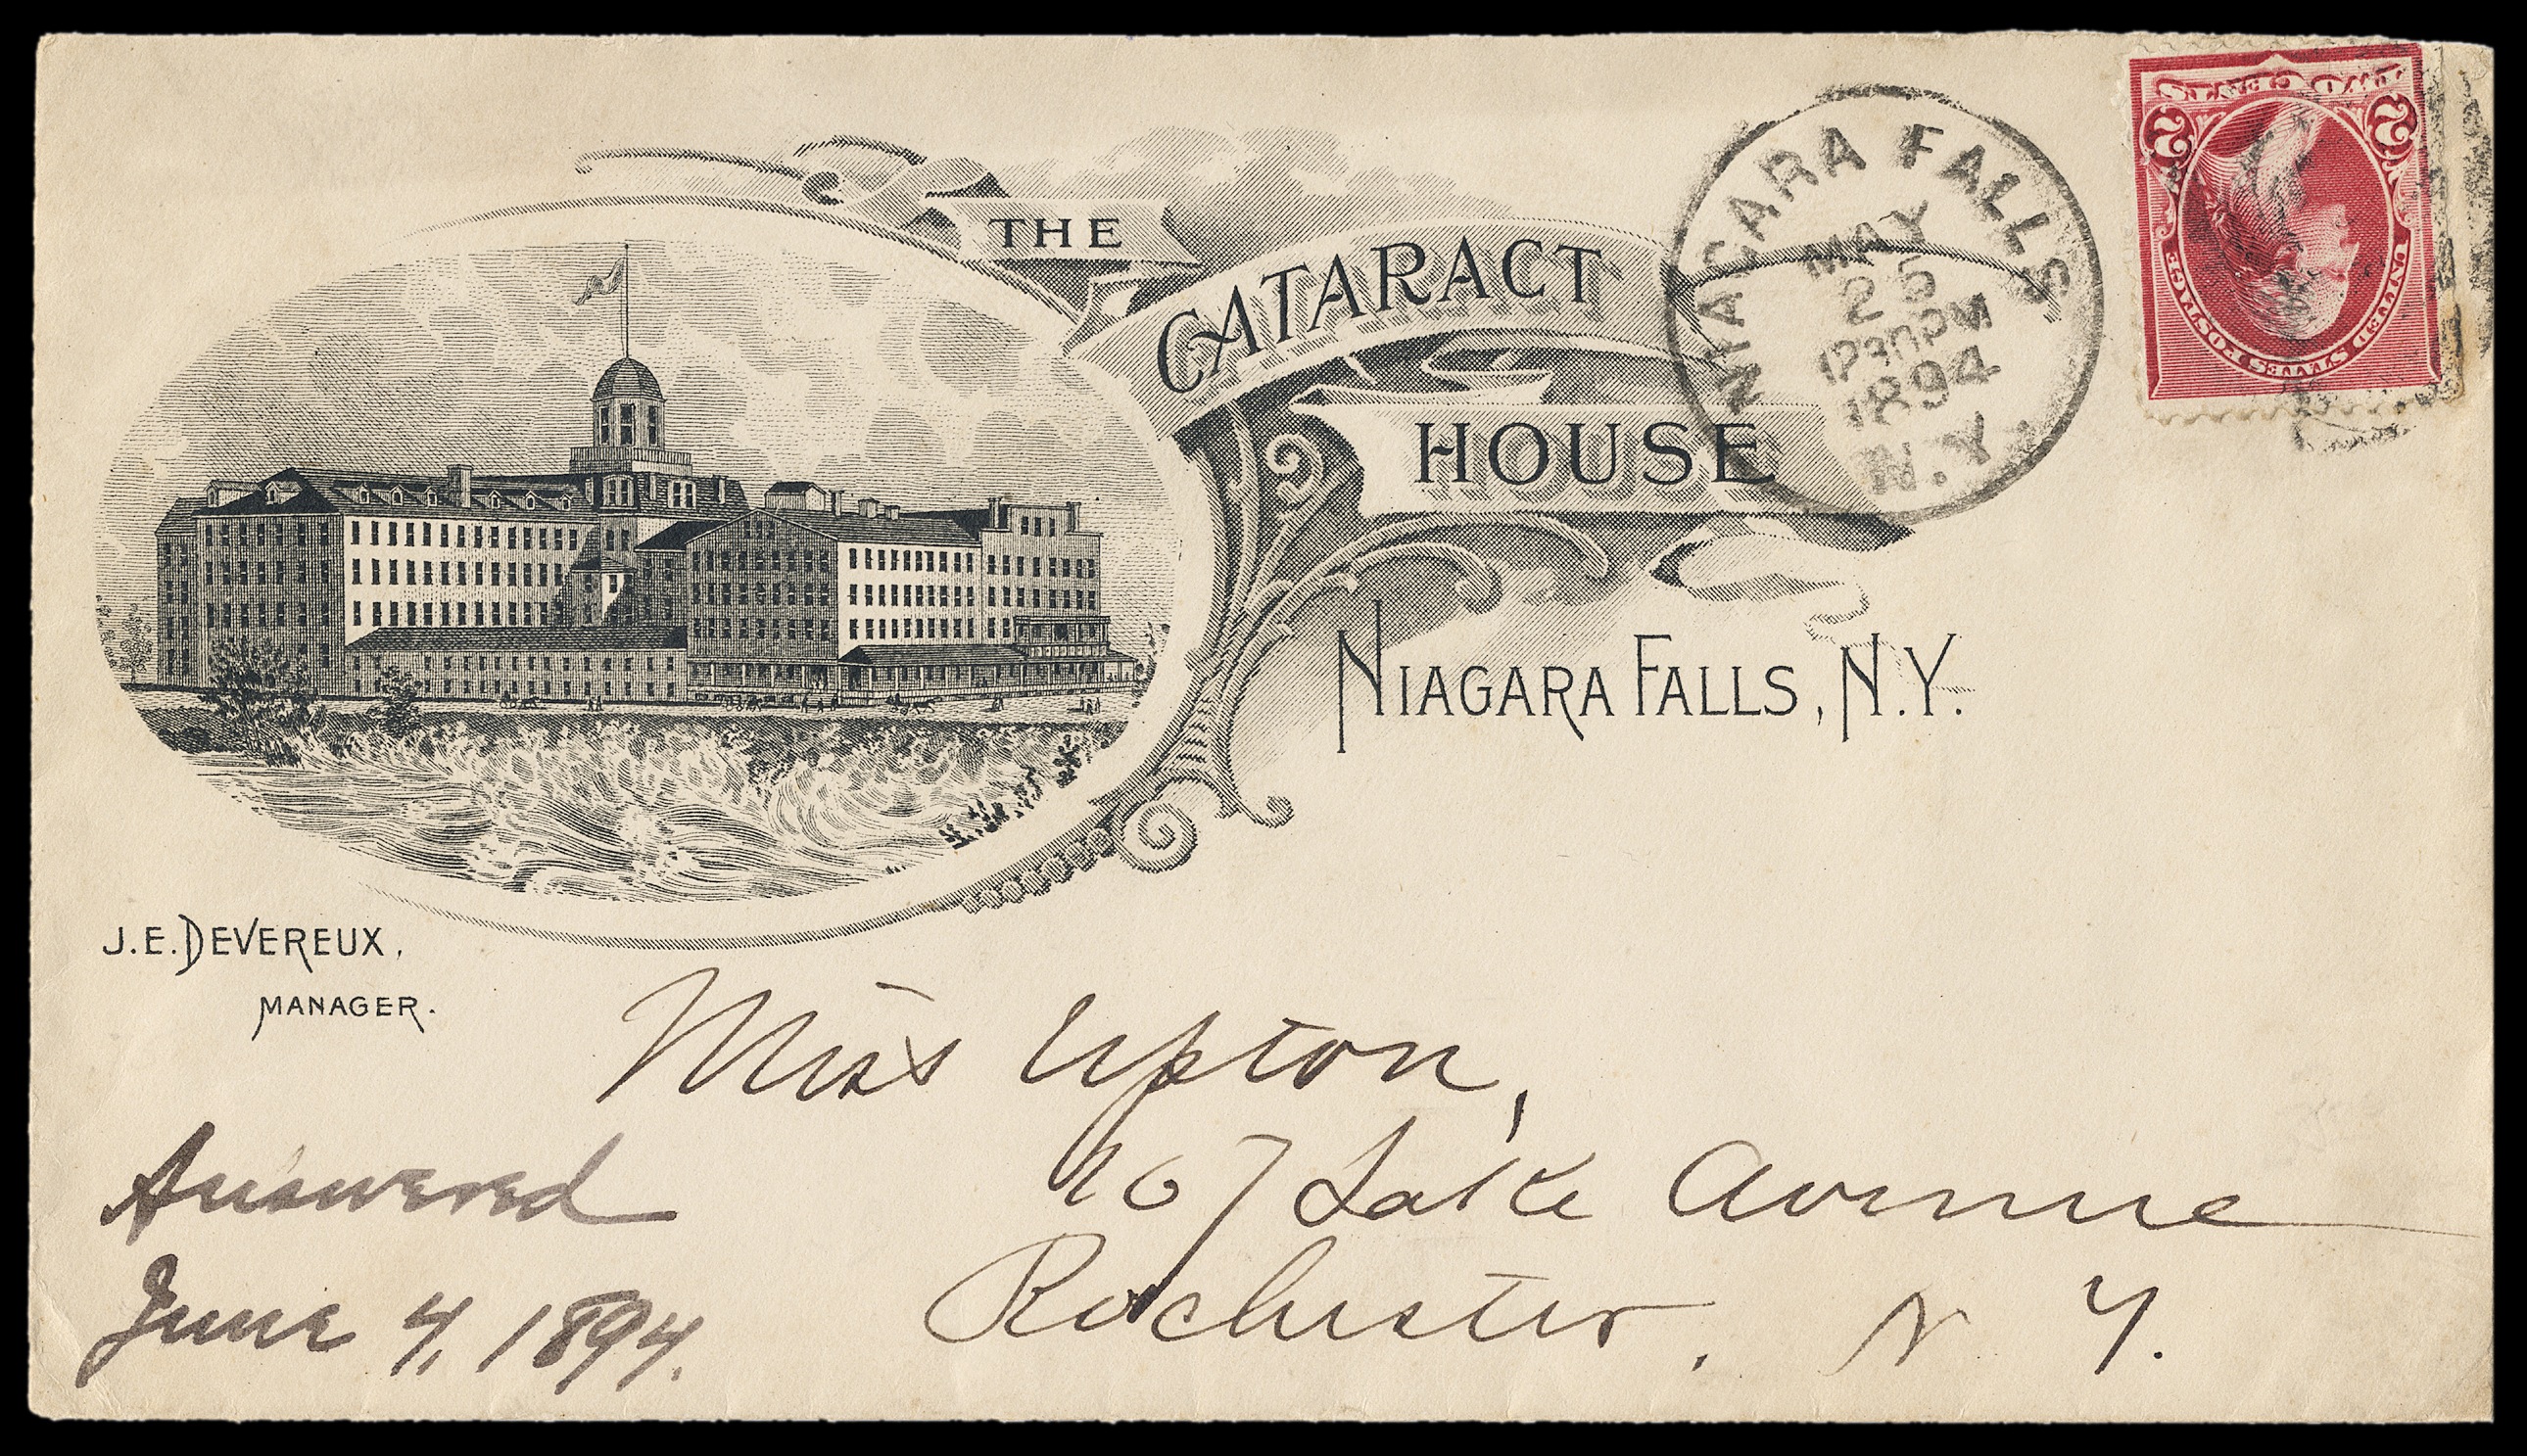 THE
CATARACT
HOUSE
NIAGARA FALLS, N.Y.
NIAGARA FALLS
MAY
25
1230PM
1894
N.Y.
TWO CENTS
2 2
UNITED STATES POSTAGE
J.E. DEVEREUX,
MANAGER.
Miss Upton,
Lake Avenue
Rochester, N Y.
Answered
June 4, 1894.